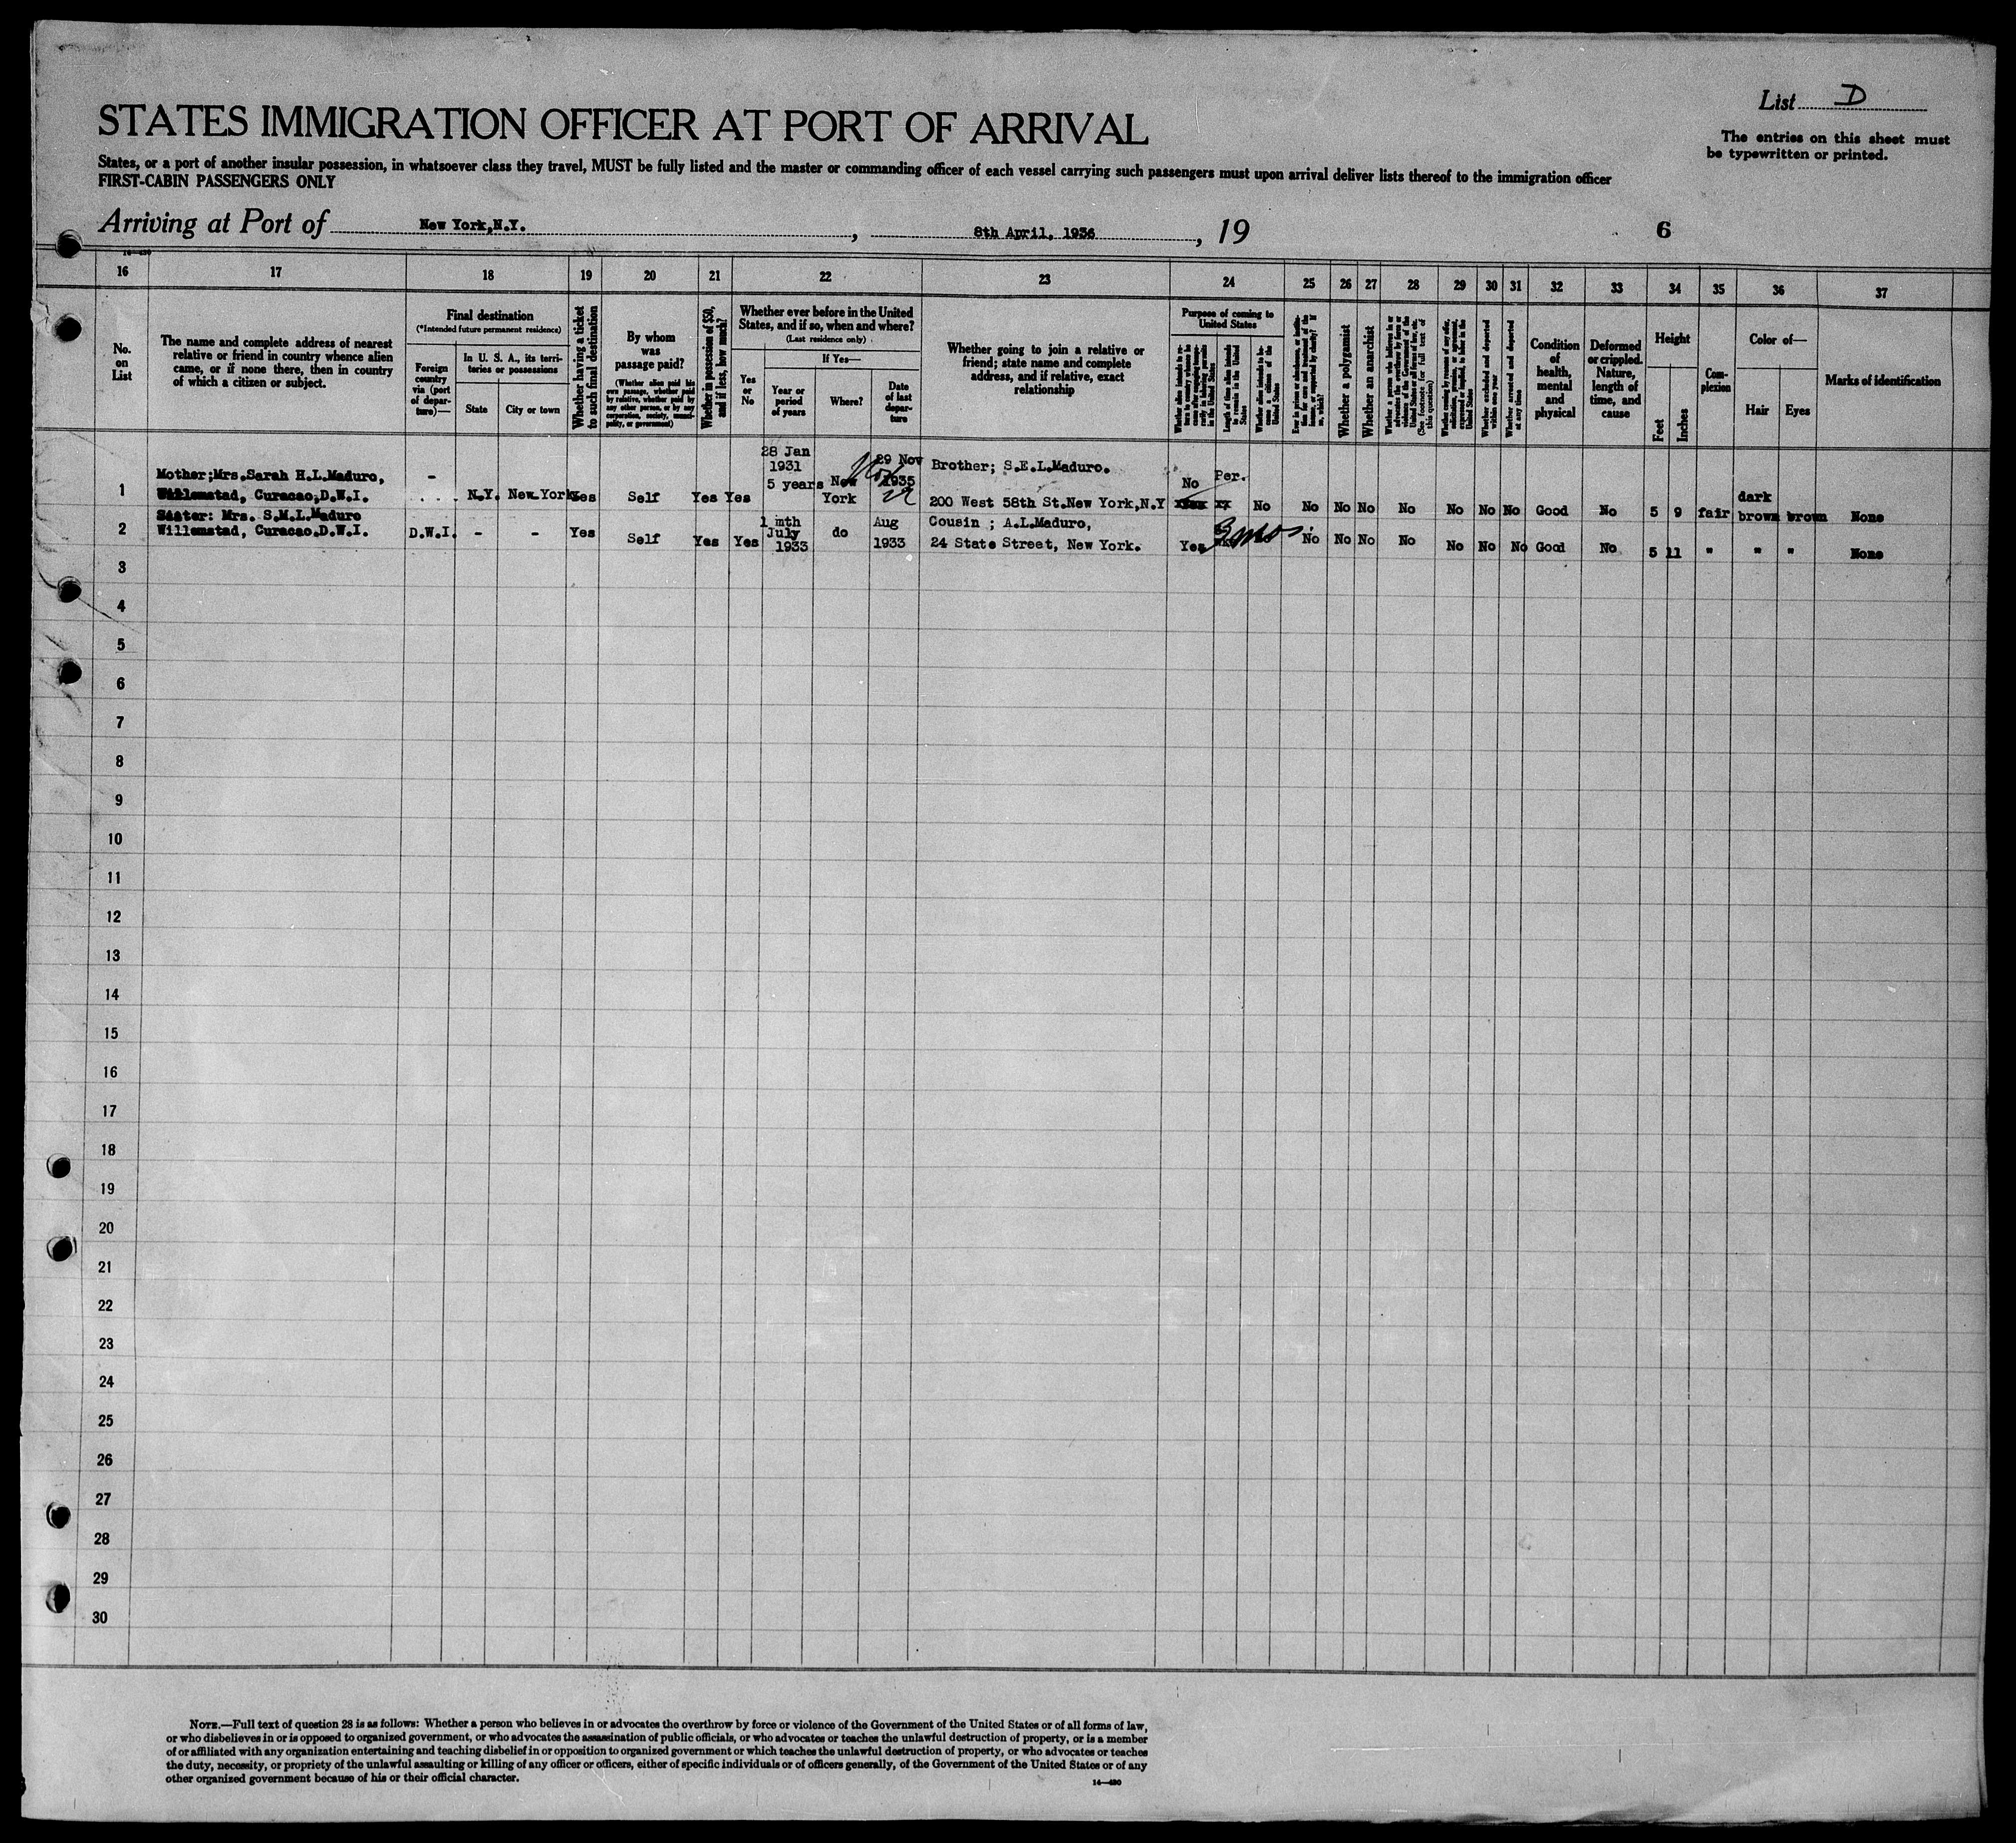 List D
STATES IMMIGRATION OFFICER AT PORT OF ARRIVAL
The entries on this sheet must
be typewritten or printed.
States, or a port of another insular possession, in whatsoever class they travel, MUST be fully listed and the master or commanding officer of each vessel carrying such passengers must upon arrival deliver lists thereof to the immigration officer
FIRST-CABIN PASSENGERS ONLY
Arriving at Port of New York,N.Y. , 8th April, 1936 , 19 6
16 17 18 19 20 21 22 23 24 25 26 27 28 29 30 31 32 33 34 35 36 37
No.
on
List
The name and complete address of nearest
relative or friend in country whence alien
came, or if none there, then in country
of which a citizen or subject.
Final destination
(*Intended future permanent residence)
Foreign
country
via (port
of depar-
ture)—
In U. S. A., its terri-
tories or possessions
State
City or town
Whether having a ticket
to such final destination
By whom
was
passage paid?
(Whether alien paid his
own passage, whether paid
by relative, whether paid by
any other person, or by any
corporation, society, munici-
pality, or government)
Whether in possession of $50,
and if less, how much?
Whether ever before in the United
States, and if so, when and where?
(Last residence only)
Yes
or
No
If Yes—
Year or
period
of years
Where?
Date
of last
depar-
ture
Whether going to join a relative or
friend; state name and complete
address, and if relative, exact
relationship
Purpose of coming to
United States
Length of time alien intends
to remain in the United
States
Whether alien intends to be-
come a citizen of the
United States
Whether a polygamist
Whether an anarchist
(See footnote for full text of
this question)
Whether excluded and deported
within one year
Whether arrested and deported
at any time
Condition
of
health,
mental
and
physical
Deformed
or crippled.
Nature,
length of
time, and
cause
Height
Feet
Inches
Com-
plexion
Color of—
Hair
Eyes
Marks of identification
1 Mother;Mrs.Sarah H.L.Maduro,
Willemstad, Curacao;D.W.I.
- N.Y. New York Yes Self Yes Yes
28 Jan
1931
5 years
New
York
29 Nov
1935
Brother; S.E.L.Maduro.
200 West 58th St.New York,N.Y
No Per. No No No No No No No No Good No 5 9 fair dark
brown brown None
2 Sister: Mrs. S.M.L.Maduro
Willemstad, Curacao.D.W.I.
D.W.I. - - Yes Self Yes Yes
1 mth
July
1933
do
Aug
1933
Cousin ; A.L.Maduro,
24 State Street, New York.
Yes 3 mos. No No No No No No No Good No 5 11 " " " None
3
4
5
6
7
8
9
10
11
12
13
14
15
16
17
18
19
20
21
22
23
24
25
26
27
28
29
30
NOTE.—Full text of question 28 is as follows: Whether a person who believes in or advocates the overthrow by force or violence of the Government of the United States or of all forms of law,
or who disbelieves in or is opposed to organized government, or who advocates the assassination of public officials, or who advocates or teaches the unlawful destruction of property, or is a member
of or affiliated with any organization entertaining and teaching disbelief in or opposition to organized government or which teaches the unlawful destruction of property, or who advocates or teaches
the duty, necessity, or propriety of the unlawful assaulting or killing of any officer or officers, either of specific individuals or of officers generally, of the Government of the United States or of any
other organized government because of his or their official character.
14—480